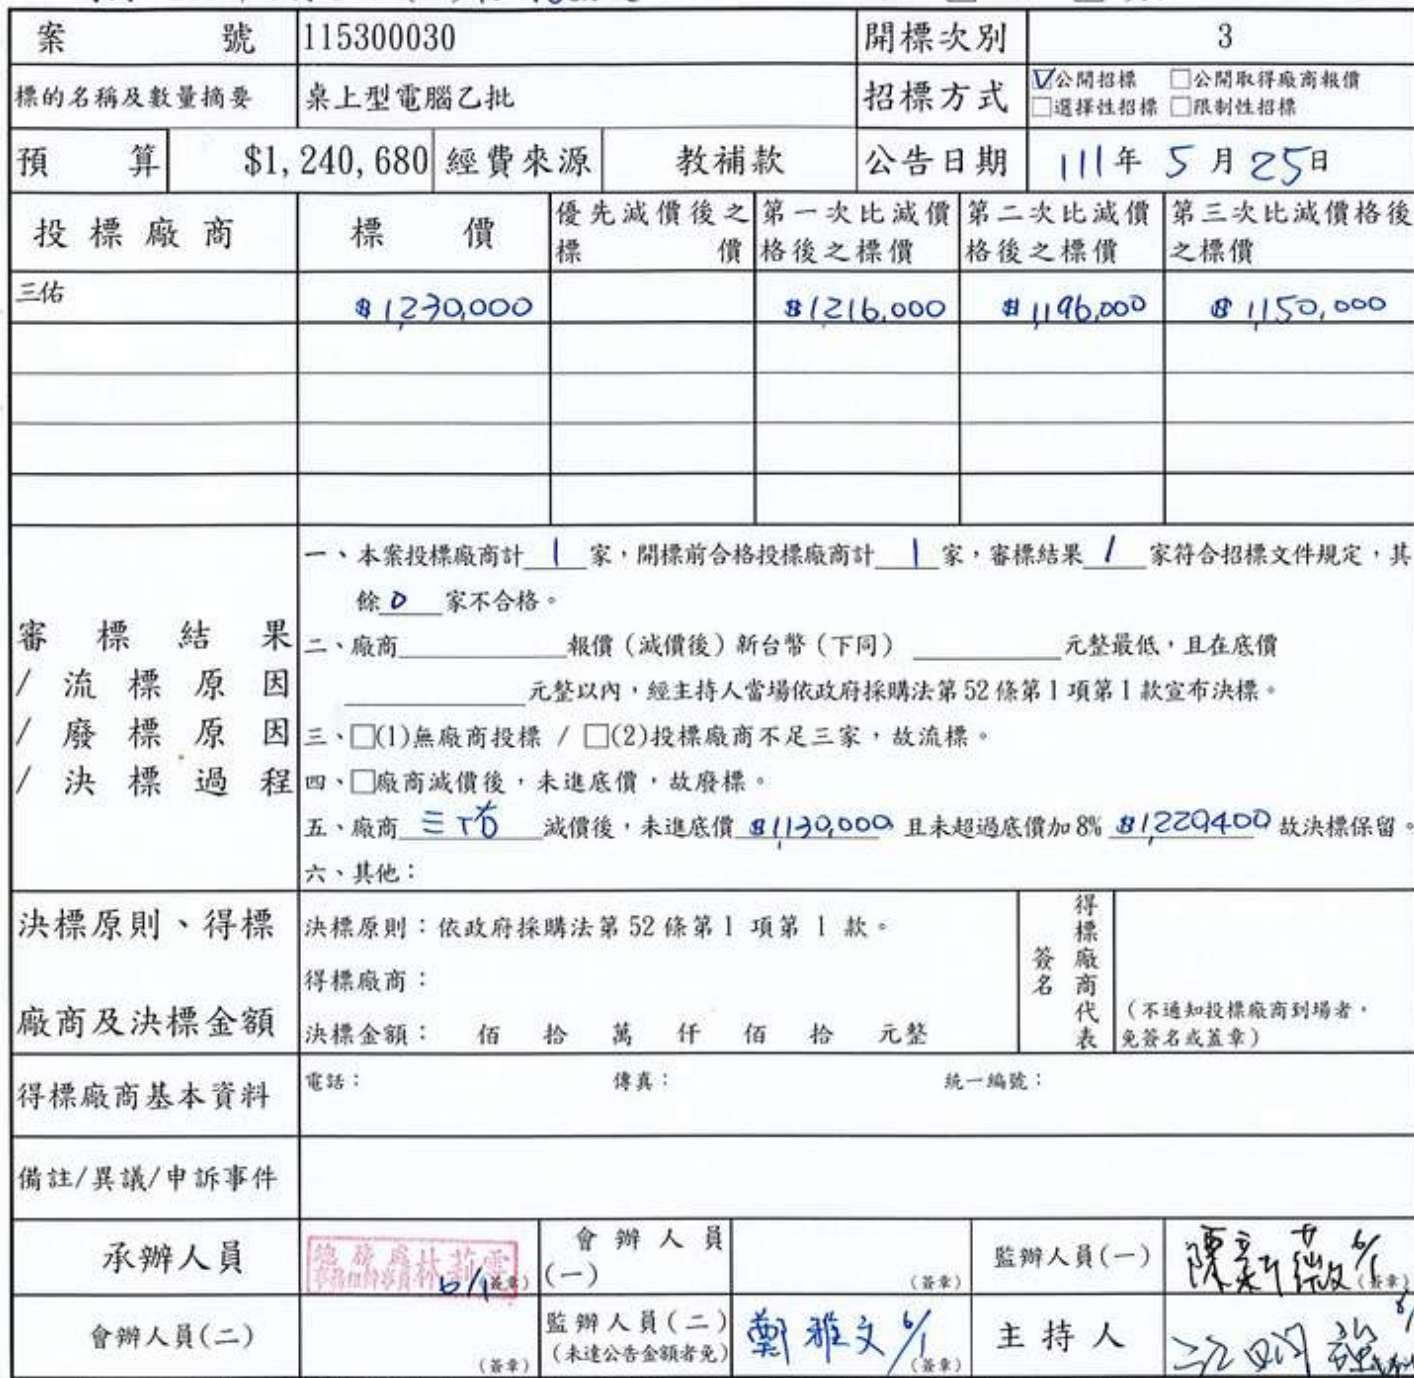 案 號 115300030 開標次別 3
標的名稱及數量摘要 桌上型電腦乙批 招標方式 ☑公開招標 □公開取得廠商報價
□選擇性招標 □限制性招標
預 算 $1,240,680 經費來源 教補款 公告日期 111年 5月25日
投標廠商 標 價 優先減價後之標 價 第一次比減價格後之標價 第二次比減價格後之標價 第三次比減價格後之標價
三佑 $1,230,000 $1,216,000 $1,196,000 $1,150,000
審標結果
/流標原因
/廢標原因
/決標過程
一、本案投標廠商計 1 家,開標前合格投標廠商計 1 家,審標結果 1 家符合招標文件規定,其
餘 0 家不合格。
二、廠商 報價(減價後)新台幣(下同) 元整最低,且在底價
元整以內,經主持人當場依政府採購法第52條第1項第1款宣布決標。
三、□(1)無廠商投標 / □(2)投標廠商不足三家,故流標。
四、□廠商減價後,未進底價,故廢標。
五、廠商 三佑 減價後,未進底價 $1,130,000 且未超過底價加8% $1,220,400 故決標保留。
六、其他:
決標原則、得標
廠商及決標金額
決標原則:依政府採購法第52條第1項第1款。
得標廠商:
決標金額: 佰 拾 萬 仟 佰 拾 元整
得標廠商代表
簽名
(不通知投標廠商到場者,
免簽名或蓋章)
得標廠商基本資料 電話: 傳真: 統一編號:
備註/異議/申訴事件
承辦人員 林莉雲 6/1 (簽章) 會辦人員(一) (簽章) 監辦人員(一) 6/1 (簽章)
會辦人員(二) (簽章) 監辦人員(二)(未達公告金額者免) 鄭雅文 6/1 (簽章) 主持人